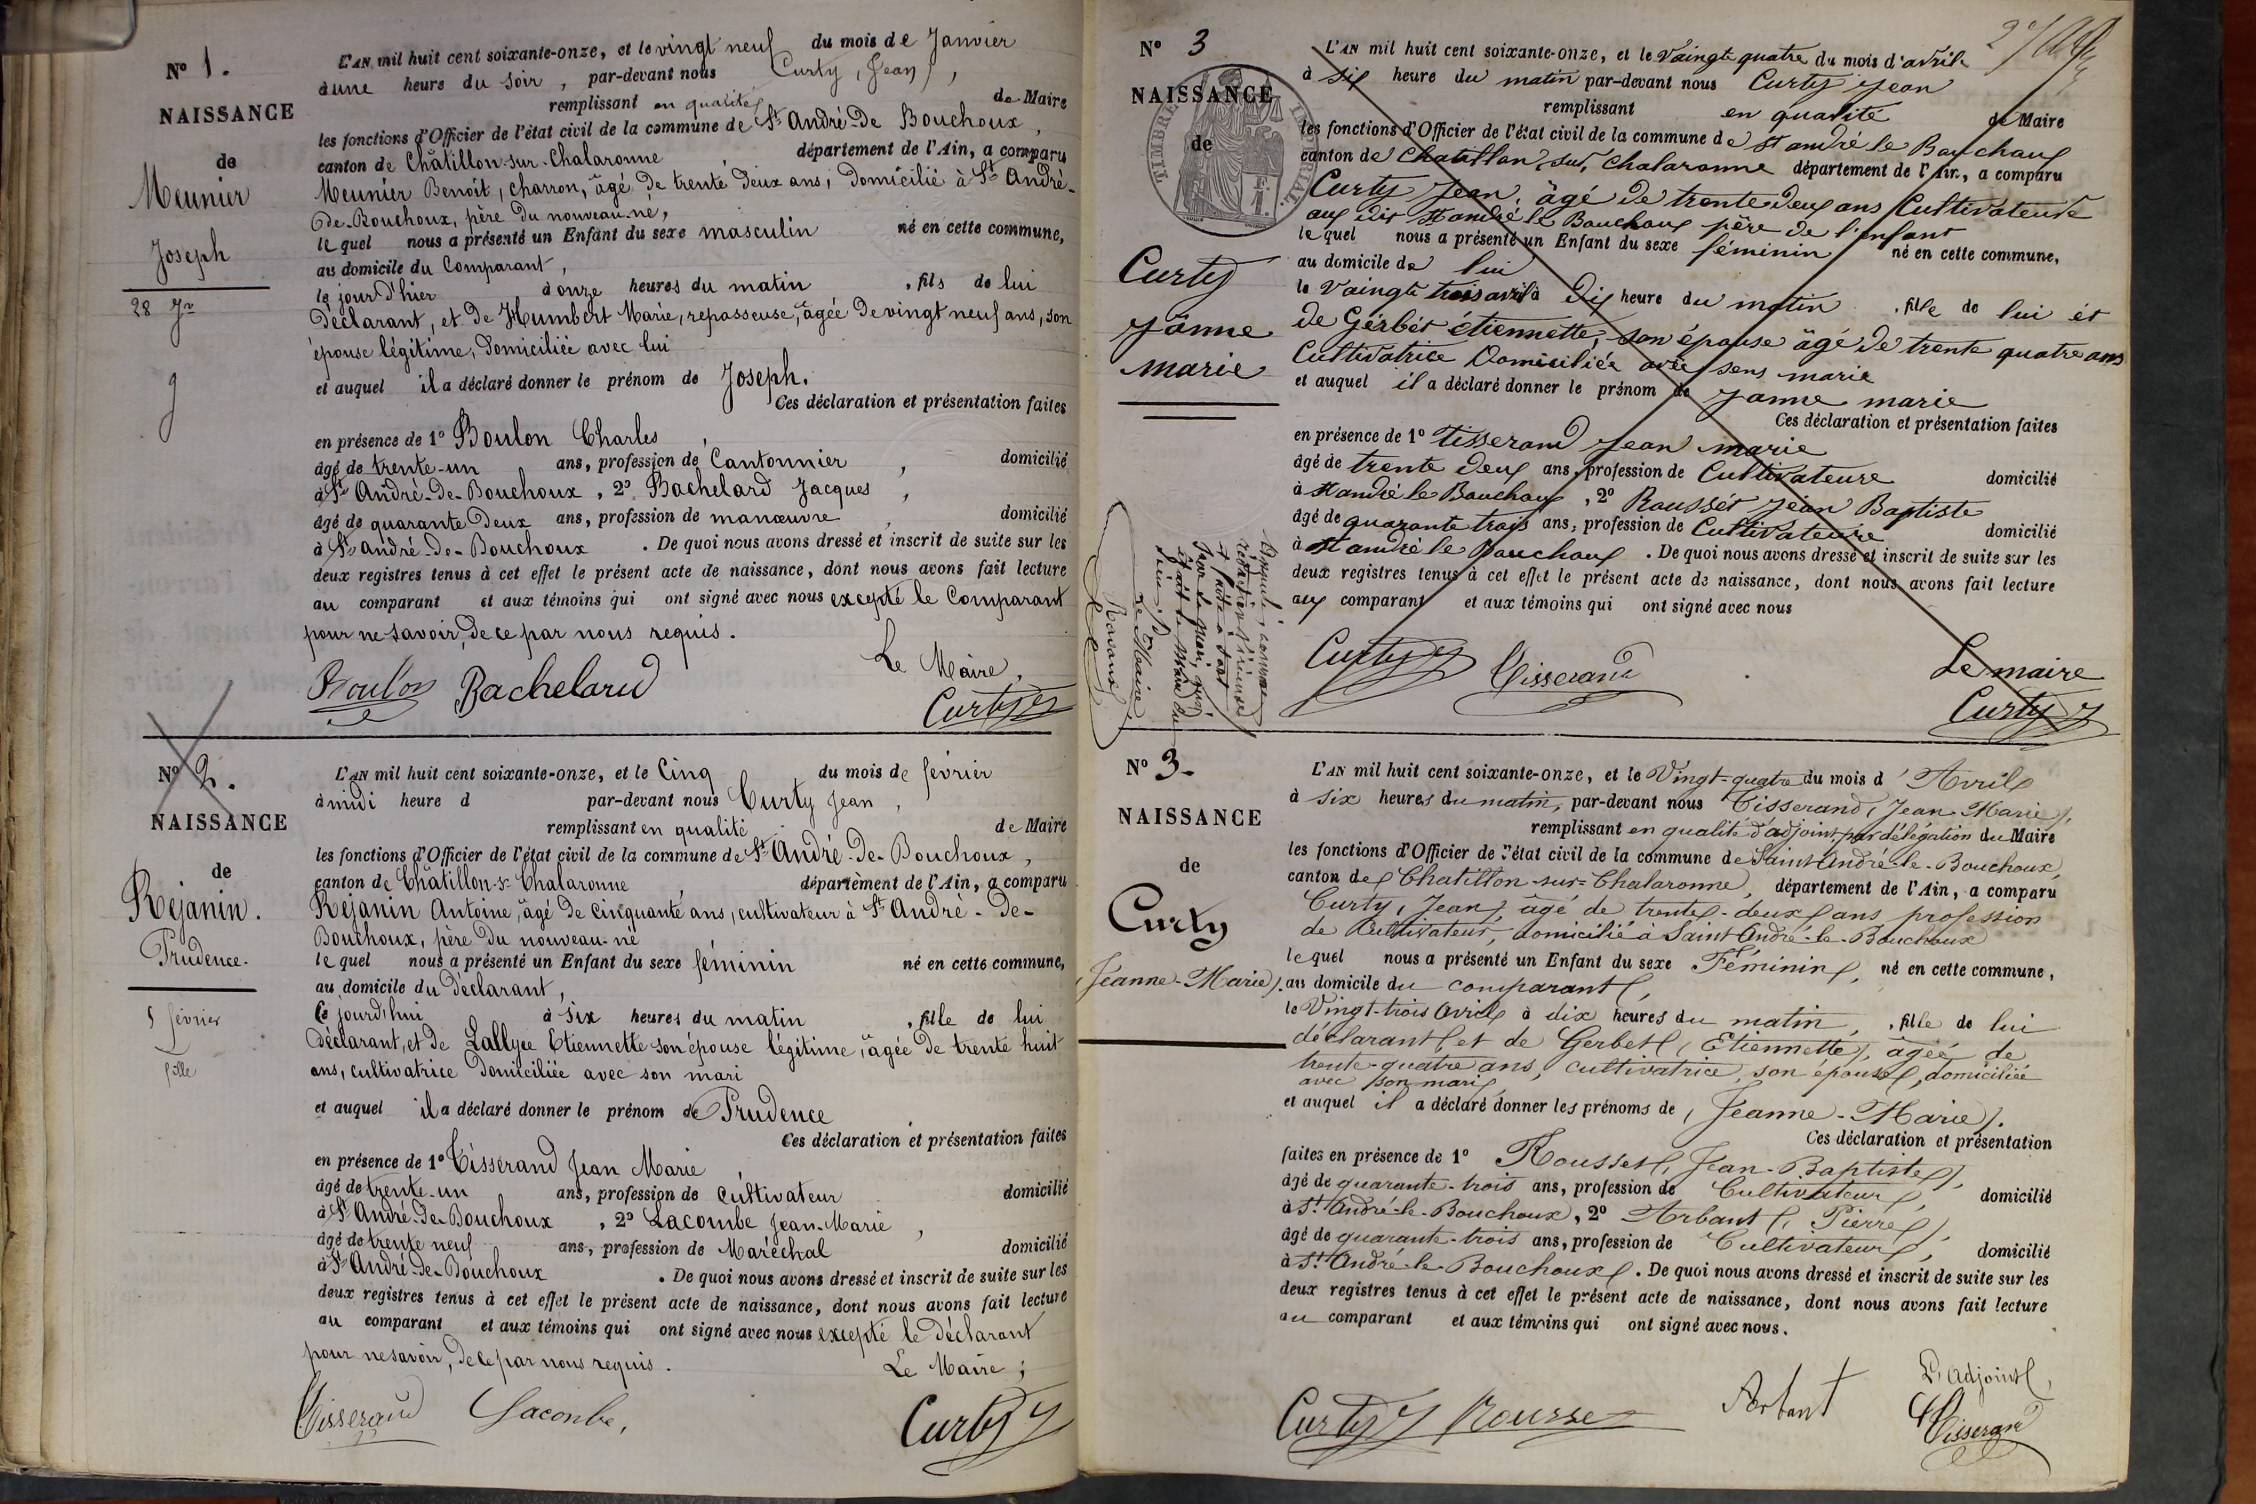 N° 1.
NAISSANCE
de
Meunier
Joseph
28 Jr
L'AN mil huit cent soixante-onze, et le vingt neuf du mois de Janvier
à une heure du soir, par-devant nous Curty (Jean),
remplissant en qualité de Maire
les fonctions d'Officier de l'état civil de la commune de St André-De Bouchoux,
canton de Châtillon-sur-Chalaronne, département de l'Ain, a comparu
Meunier Benoît, charron, âgé de trente deux ans, domicilié à St André-
de-Bouchoux, père du nouveau-né,
lequel nous a présenté un Enfant du sexe masculin né en cette commune,
au domicile du Comparant,
le jour d'hier à onze heures du matin, fils de lui
Déclarant, et de Humbert Marie, repasseuse, âgée de vingt neuf ans, son
épouse légitime, domiciliée avec lui
et auquel il a déclaré donner le prénom de Joseph.
Ces déclaration et présentation faites
en présence de 1° Boulon Charles,
âgé de trente-un ans, profession de Cantonnier, domicilié
à St André-de-Bouchoux, 2° Bachelard Jacques,
âgé de quarante deux ans, profession de manœuvre, domicilié
à St André-de-Bouchoux. De quoi nous avons dressé et inscrit de suite sur les
deux registres tenus à cet effet le présent acte de naissance, dont nous avons fait lecture
au comparant et aux témoins qui ont signé avec nous excepté le Comparant
pour ne savoir, de ce par nous requis.
Le Maire,
Boulon Bachelard Curty
N° 2.
NAISSANCE
de
Réjanin.
Prudence.
5 février
fille
L'AN mil huit cent soixante-onze, et le Cinq du mois de février
à midi heure d par-devant nous Curty Jean,
remplissant en qualité de Maire
les fonctions d'Officier de l'état civil de la commune de St André-de-Bouchoux,
canton de Châtillon-s-Chalaronne, département de l'Ain, a comparu
Réjanin Antoine, âgé de cinquante ans, cultivateur à St André-de-
Bouchoux, père du nouveau-né
lequel nous a présenté un Enfant du sexe féminin né en cette commune,
au domicile du Déclarant,
Ce jourd'hui à six heures du matin, fille de lui
déclarant, et de Lallyee Etiennette son épouse légitime, âgée de trente huit
ans, cultivatrice domiciliée avec son mari
et auquel il a déclaré donner le prénom de Prudence
Ces déclaration et présentation faites
en présence de 1° Tisserand Jean Marie,
âgé de trente-un ans, profession de cultivateur domicilié
à St André-de-Bouchoux, 2° Lacombe Jean-Marie,
âgé de trente neuf ans, profession de Maréchal domicilié
à St André-de-Bouchoux. De quoi nous avons dressé et inscrit de suite sur les
deux registres tenus à cet effet le présent acte de naissance, dont nous avons fait lecture
au comparant et aux témoins qui ont signé avec nous excepté le déclarant
pour ne savoir, de ce par nous requis.
Le Maire;
Tisserand Lacombe, Curty
N° 3
NAISSANCE
de
TIMBRE IMPERIAL.
Curty
Janne
marie
L'AN mil huit cent soixante-onze, et le Vaingt quatre du mois d'avril
à six heure du matin par-devant nous Curty Jean
remplissant en qualité de Maire
les fonctions d'Officier de l'état civil de la commune de St andré le Bouchoux
canton de Chatillon, sur, Chalaronne département de l'Ain, a comparu
Curty Jean, âgé de trente deux ans Cultivateure
aux dit St andré le Bouchoux père de l'enfant
lequel nous a présenté un Enfant du sexe féminin né en cette commune,
au domicile de lui
le Vaingt trois avril à dix heure du matin, fille de lui ét
de Gérbét étiennette, son épouse âgé de trente quatre ans
Cultivatrice Domiciliée avéc sens marie
et auquel il a déclaré donner le prénom de Janne marie
Ces déclaration et présentation faites
en présence de 1° Tisserand Jean marie
âgé de trente deux ans, profession de Cultivateure domicilié
à St andré le Bouchoux, 2° Roussét Jean Baptiste
âgé de quarante trois ans, profession de Cultivateure domicilié
à St andré le Bouchoux. De quoi nous avons dressé et inscrit de suite sur les
deux registres tenus à cet effet le présent acte de naissance, dont nous avons fait lecture
aux comparant et aux témoins qui ont signé avec nous
Annulé, comme
rédaction vicieuse
et faite à tort
par le mari, qui
était le Maire
Le Maire
Curty Tisserand
Le maire
Curty
N° 3.
NAISSANCE
de
Curty
(Jeanne-Marie).
L'AN mil huit cent soixante-onze, et le Vingt-quatre du mois d'Avril
à six heures du matin, par-devant nous Tisserand (Jean Marie),
remplissant en qualité d'adjoint, par délégation du Maire
les fonctions d'Officier de l'état civil de la commune de Saint André-le-Bouchoux,
canton de Chatillon-sur-Chalaronne, département de l'Ain, a comparu
Curty (Jean), âgé de trente-deux ans profession
de Cultivateur, domicilié à Saint André-le-Bouchoux
lequel nous a présenté un Enfant du sexe Féminin, né en cette commune,
au domicile du comparant,
le Vingt-trois Avril à dix heures du matin, fille de lui
déclarant, et de Gerbet (Etiennette), âgée de
trente-quatre ans, cultivatrice, son épouse, domiciliée
avec son mari,
et auquel il a déclaré donner les prénoms de (Jeanne-Marie).
Ces déclaration et présentation
faites en présence de 1° Rousset (Jean-Baptiste),
âgé de quarante-trois ans, profession de Cultivateur, domicilié
à St André-le-Bouchoux, 2° Arbant (Pierre),
âgé de quarante-trois ans, profession de Cultivateur, domicilié
à St André-le-Bouchoux. De quoi nous avons dressé et inscrit de suite sur les
deux registres tenus à cet effet le présent acte de naissance, dont nous avons fait lecture
au comparant et aux témoins qui ont signé avec nous.
L'Adjoint,
Curty Rousset Arbant Tisserand